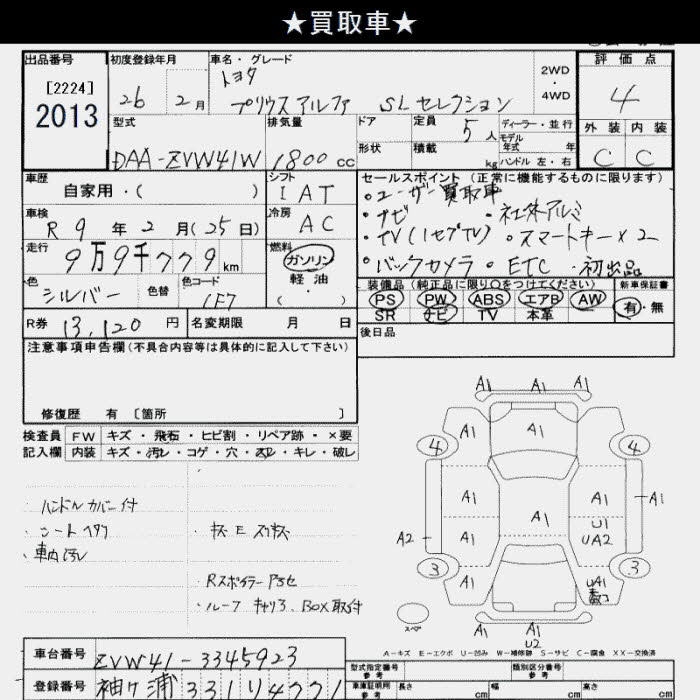 ★買取車★
出品番号
[2224]
2013
初度登録年月
26 2月
車名・グレード
トヨタ
プリウスアルファ SLセレクション
2WD
・
4WD
評価点
4
外装 内装
C C
型式
DAA-ZVW41W
排気量
1800 cc
ドア
形状
定員 5人
積載 kg
ディーラー・並行
モデル
年式 年式
ハンドル 左・右
車歴
自家用・( )
シフト
IAT
車検
R9年2月(25日)
冷房
AC
走行
9万9千779km
燃料
ガソリン
軽油
( )
色
シルバー
色替
色コード
1F7
R券 13,120円
名変期限 月 日
セールスポイント (正常に機能するものに限ります)
・ユーザー買取車
・ナビ ・社外アルミ
・TV(1セグTV) ・スマートキー×2
・バックカメラ ・ETC ・初出品
装備品 (純正品に限り○をつけてください)
PS PW ABS エアB AW
SR ナビ TV 本革
新車保証書
有・無
後日品
注意事項申告欄(不具合内容等は具体的に記入して下さい)
修復歴 有 〔箇所 〕
検査員 FW キズ・飛石・ヒビ割・リペア跡・×要
記入欄 内装 キズ・汚レ・コゲ・穴・ス・キレ・破レ
・ハンドルカバー付
・シートヘタリ ・キズ E スリキズ
・車内汚レ
Rスポイラー
・ルーフ キャリア、BOX取付
A1 A1 A1
4 A1 A1 A1 4
A1 A1 A1
A1 U1
A2 A1 UA2
3 A1 UA1 3
スペア
A1 A1 A1
U2
A-キズ E-エクボ U-凹み W-補修跡 S-サビ C-腐食 XX-交換済
車台番号 ZVW41-3345923
登録番号 袖ヶ浦 331 4771
型式指定番号 類別区分番号
参考 参考
車庫証明用 長さ 幅 高さ
参考 cm cm cm